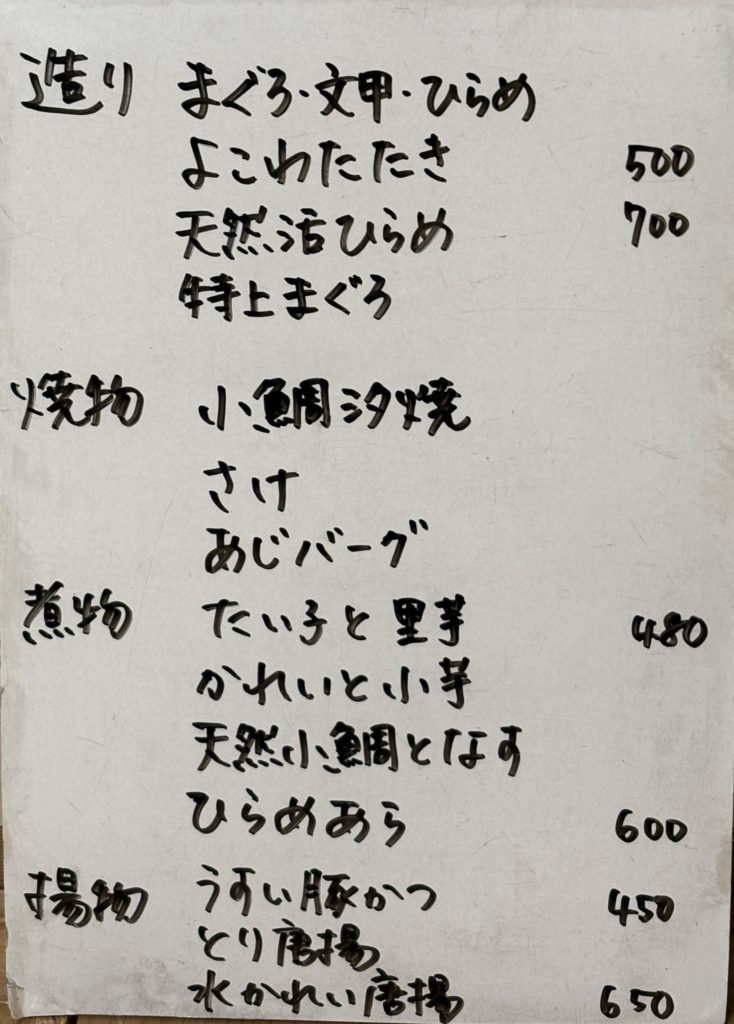 造り まぐろ・文甲・ひらめ
よこわたたき 500
天然活ひらめ 700
特上まぐろ
焼物 小鯛汐焼
さけ
あじバーグ
煮物 たい子と里芋 480
かれいと小芋
天然小鯛となす
ひらめあら 600
揚物 うすい豚かつ 450
とり唐揚
水かれい唐揚 650